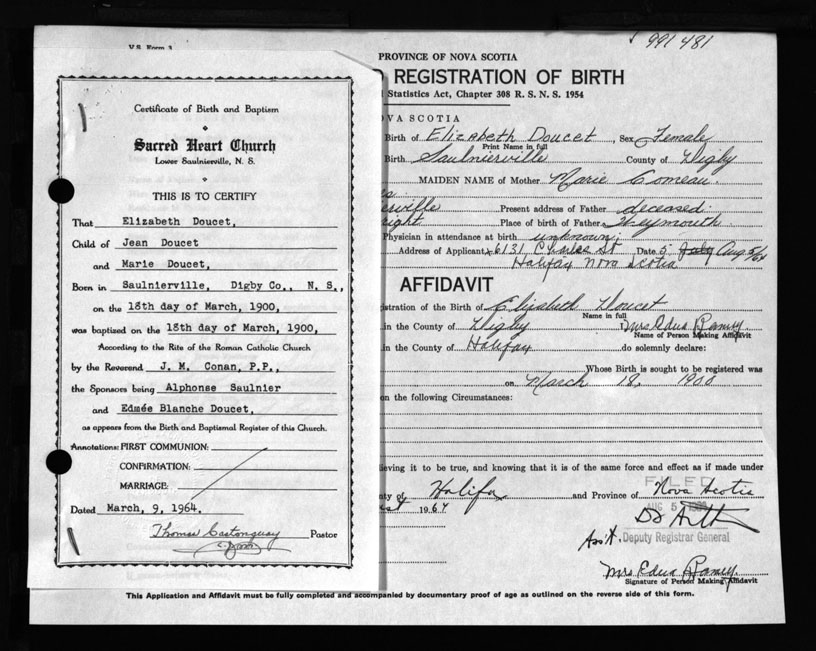 991481
V.S. Form 3
PROVINCE OF NOVA SCOTIA
REGISTRATION OF BIRTH
Statistics Act, Chapter 308 R. S. N. S. 1954
OVA SCOTIA
Birth of Elizabeth Doucet, Sex Female
Print Name in full
Birth Saulnierville County of Digby
MAIDEN NAME of Mother Marie Comeau.
erville Present address of Father deceased
right Place of birth of Father Weymouth
Physician in attendance at birth unknown;
Address of Applicant 6131 Charles St Date 5 July Aug 5/64
Halifax Nova Scotia
AFFIDAVIT
stration of the Birth of Elizabeth Doucet
Name in full
in the County of Digby Mrs Edna Ramey
Name of Person Making Affidavit
in the County of Halifax do solemnly declare:
Whose Birth is sought to be registered was
on March 18, 1900
on the following Circumstances:
ieving it to be true, and knowing that it is of the same force and effect as if made under
ty of Halifax and Province of Nova Scotia
FILED
st 1964
AUG 5
Ass't. Deputy Registrar General
Mrs Edna Ramey
Signature of Person Making Affidavit
This Application and Affidavit must be fully completed and accompanied by documentary proof of age as outlined on the reverse side of this form.
Certificate of Birth and Baptism
Sacred Heart Church
Lower Saulnierville, N. S.
THIS IS TO CERTIFY
That Elizabeth Doucet,
Child of Jean Doucet
and Marie Doucet,
Born in Saulnierville, Digby Co., N. S.,
on the 18th day of March, 1900,
was baptized on the 18th day of March, 1900,
According to the Rite of the Roman Catholic Church
by the Reverend J. M. Conan, P.P.,
the Sponsors being Alphonse Saulnier
and Edmée Blanche Doucet,
as appears from the Birth and Baptismal Register of this Church.
Annotations: FIRST COMMUNION:
CONFIRMATION:
MARRIAGE:
Dated March, 9, 1964.
Thomas Castonguay Pastor